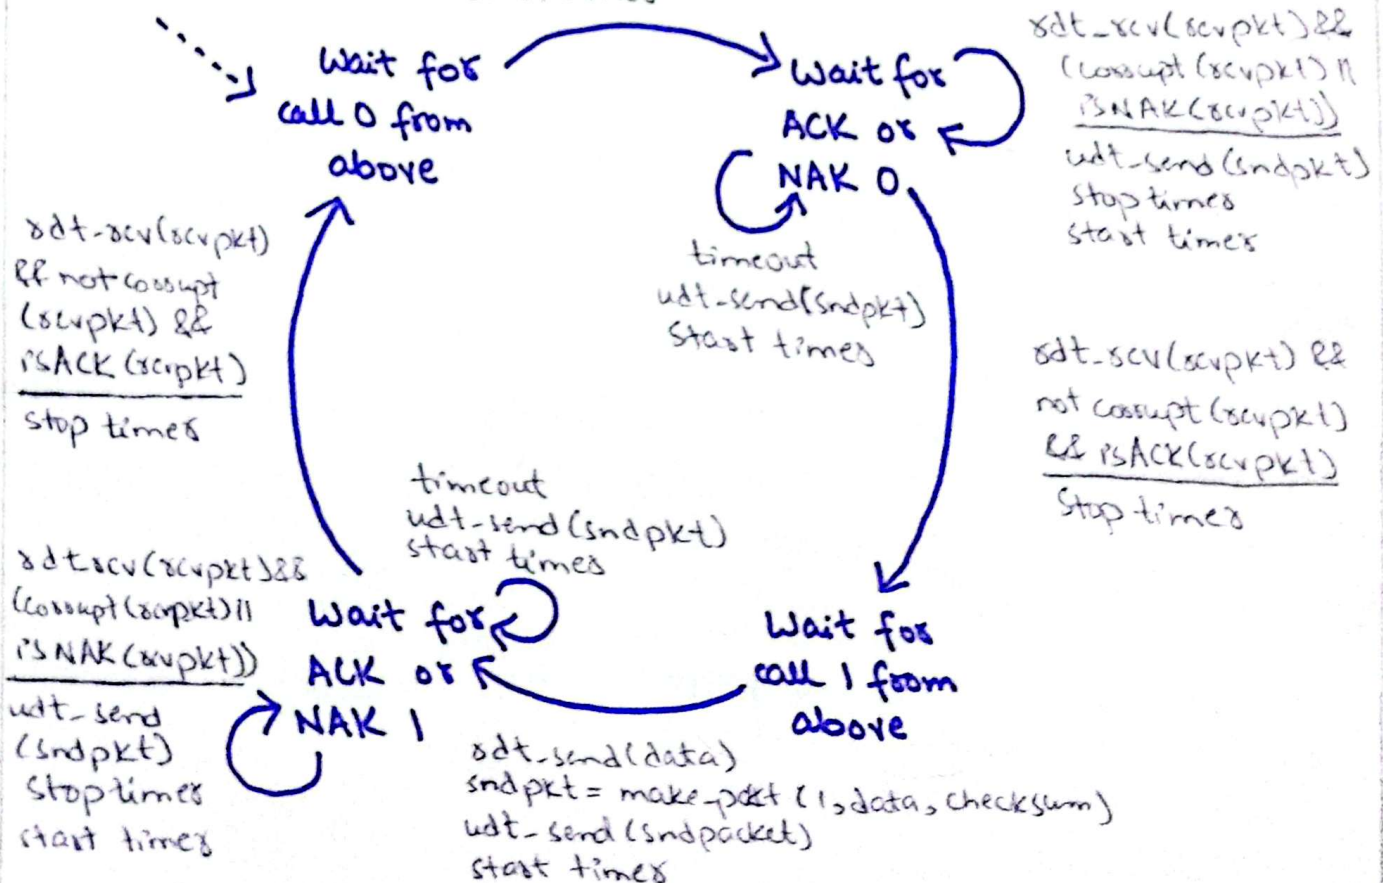 Wait for
call 0 from
above
Wait for
ACK or
NAK 0
rdt_rcv(rcvpkt) &&
(corrupt(rcvpkt) ||
isNAK(rcvpkt))
udt_send(sndpkt)
stop timer
start timer
timeout
udt_send(sndpkt)
start timer
rdt_rcv(rcvpkt)
&& not corrupt
(rcvpkt) &&
isACK(rcvpkt)
stop timer
rdt_rcv(rcvpkt) &&
not corrupt(rcvpkt)
&& isACK(rcvpkt)
stop timer
timeout
udt_send(sndpkt)
start timer
rdtrcv(rcvpkt)&&
(corrupt(rcvpkt)||
isNAK(rcvpkt))
udt_send
(sndpkt)
stop timer
start timer
Wait for
ACK or
NAK 1
Wait for
call 1 from
above
rdt_send(data)
sndpkt = make_pckt (1,data,checksum)
udt_send(sndpacket)
start timer